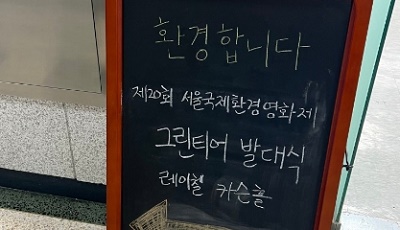 환경합니다
제20회 서울국제환경영화제
그린티어 발대식
레이첼 카슨홀